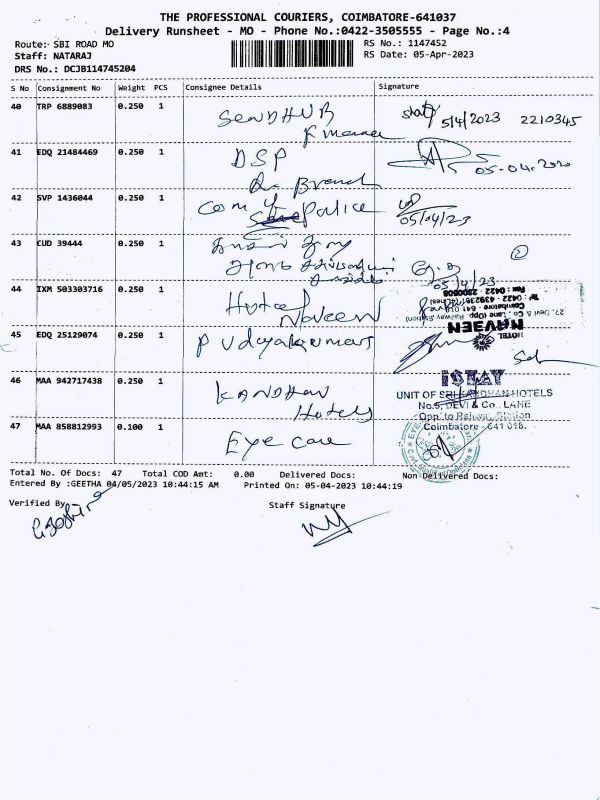 THE PROFESSIONAL COURIERS, COIMBATORE-641037
Delivery Runsheet - MO - Phone No.:0422-3505555 - Page No.:4
Route: SBI ROAD MO
RS No.: 1147452
Staff: NATARAJ
RS Date: 05-Apr-2023
DRS No.: DCJB114745204
S No Consignment No Weight PCS Consignee Details Signature
40 TRP 6889083 0.250 1 SENDHUR 5/4/2023 2210345
Finance
41 EDQ 21484469 0.250 1 DSP
Branch 05-04-2020
42 SVP 1436044 0.250 1 Com of
Police 05/04/23
43 CUD 39444 0.250 1 2
05/4/23
44 IXM 503303716 0.250 1 Hotel
Naveen
HOTEL
NAVEEN
27, Devi & Co., Lane (Opp. Railway Station)
Coimbatore - 641 018
Fax : 0422 - 2300608
45 EDQ 25129074 0.250 1 P Udayakumar
46 MAA 942717438 0.250 1 KANDHAN
Hotels
iSTAY
UNIT OF SRI KANDHAN HOTELS
No.5, DEVI & Co., LANE
Opp. to Railway Station
Coimbatore - 641 018.
47 MAA 858812993 0.100 1 Eye care
Total No. Of Docs: 47 Total COD Amt: 0.00 Delivered Docs: Non Delivered Docs:
Entered By :GEETHA 04/05/2023 10:44:15 AM Printed On: 05-04-2023 10:44:19
Verified By
Staff Signature